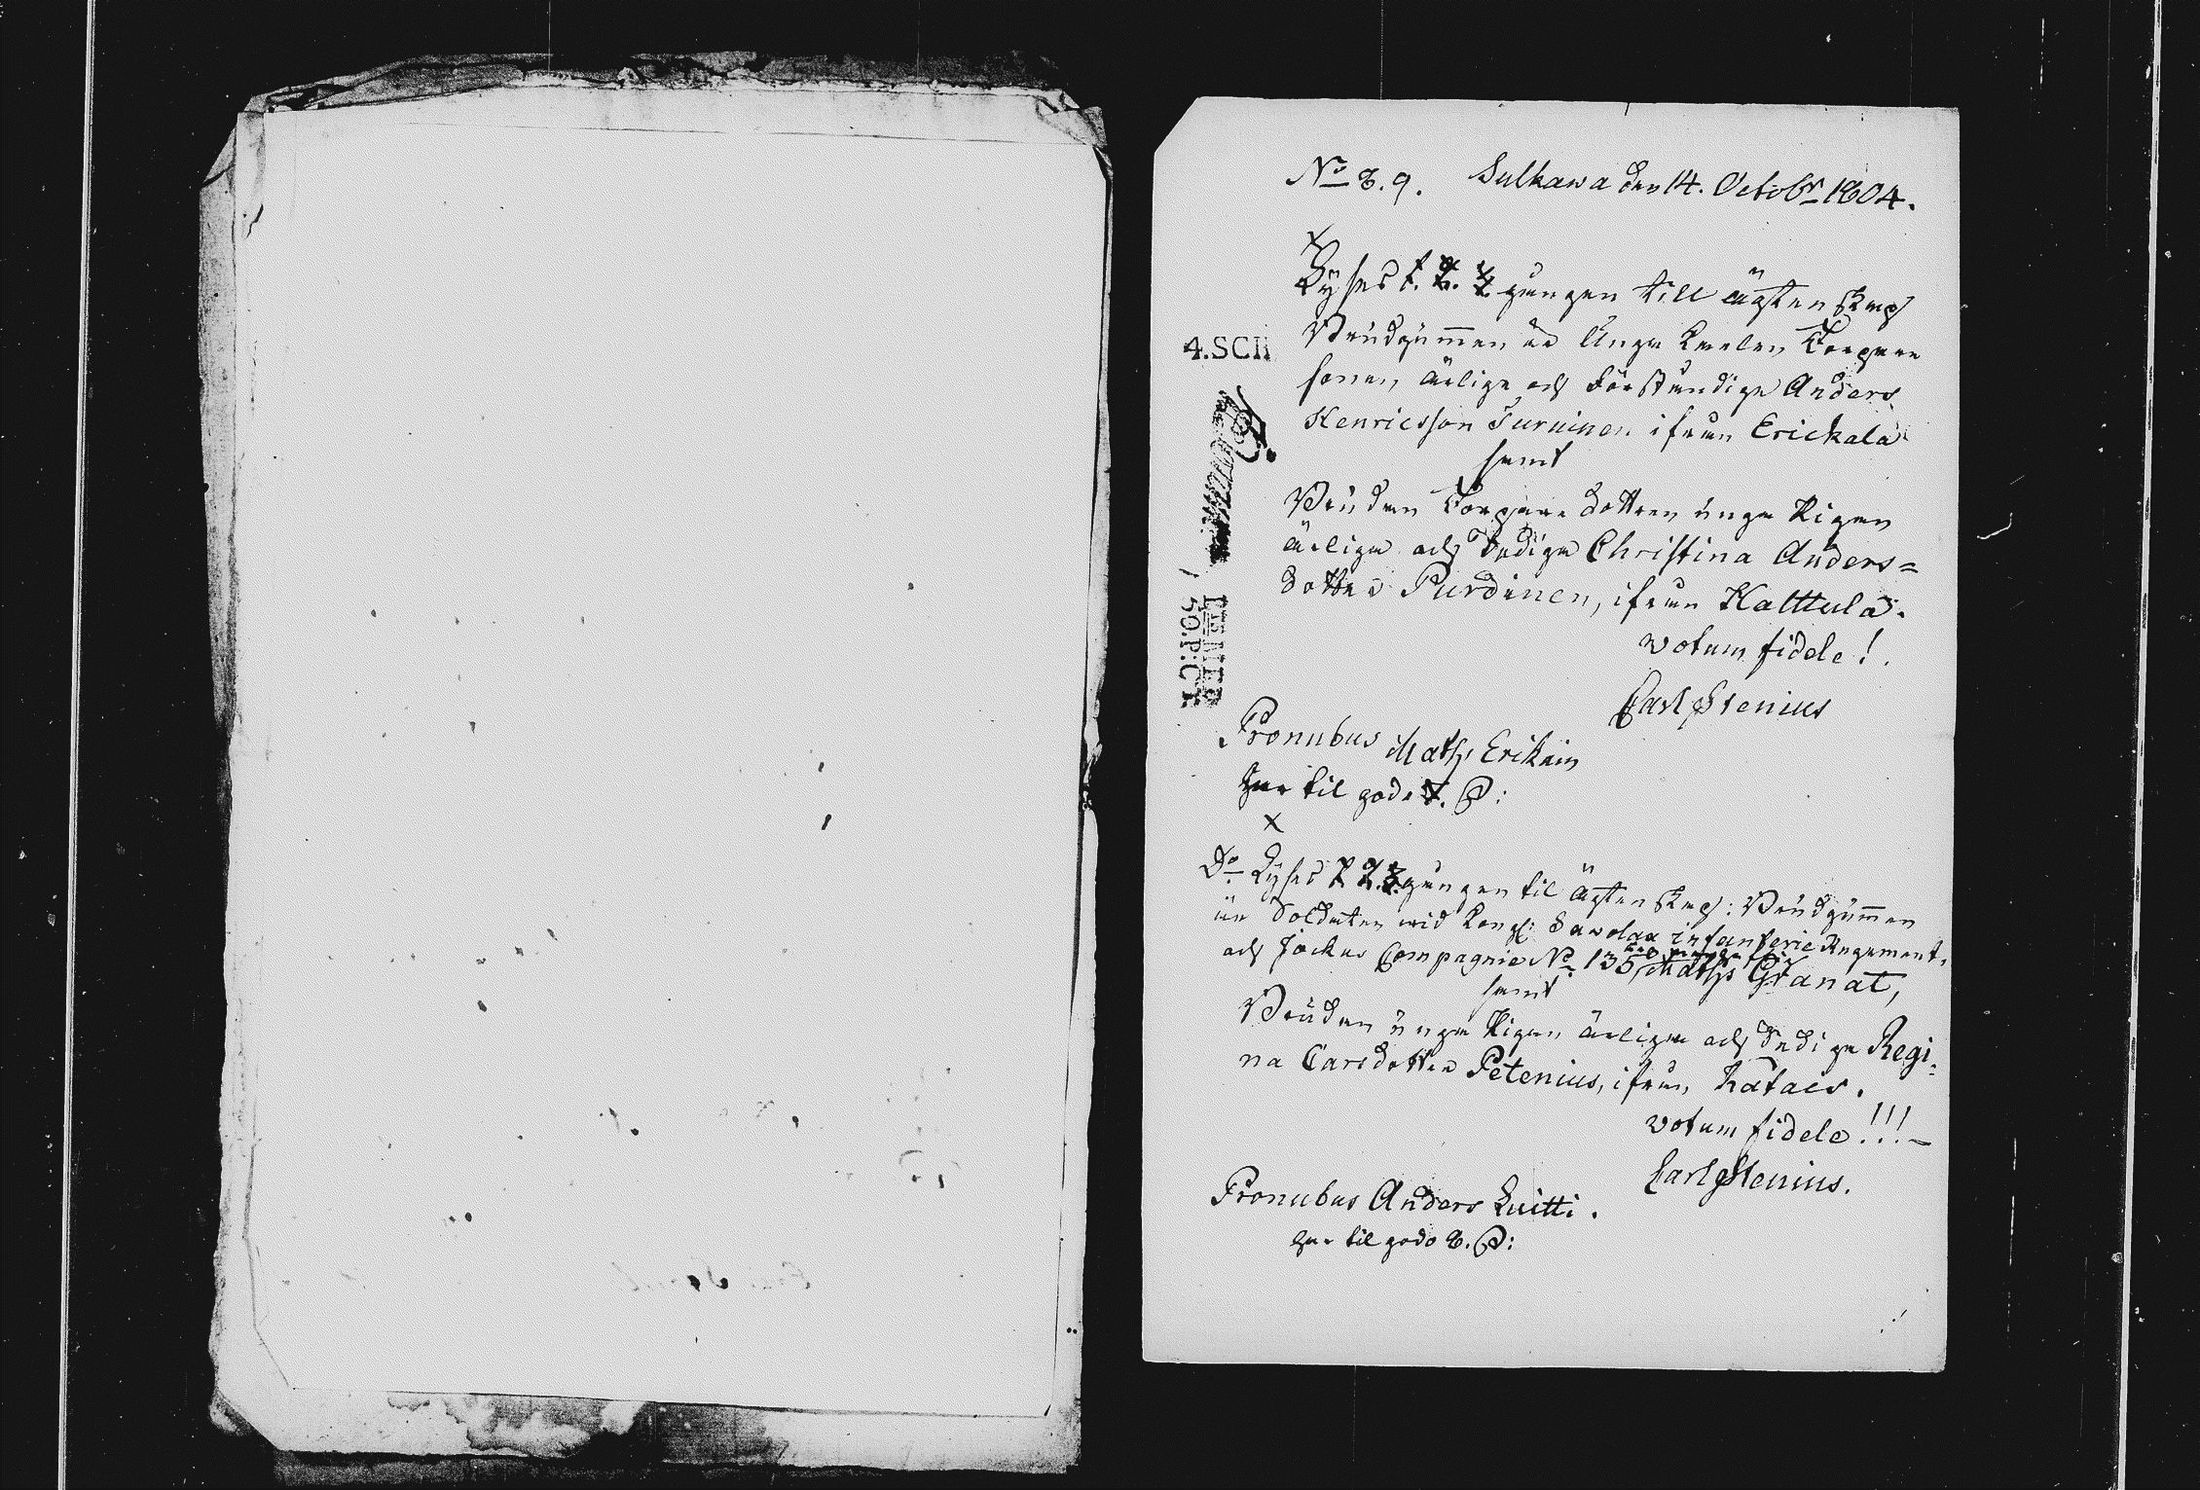 No 8. 9. Sulkawa den 14. Octobr 1804.
Lyses 1. 2. 3. gången till ägtenskap
Brudgummen är Unga Karlen Torpare
sonen, ärlige och förståndige Anders
Henricsson Turninen ifrån Erickala
samt
Bruden Torpare dottren unga Pigan
ärliga och dydiga Christina Anders=
dotter Purdinen, ifrån Kalttula.
votum fidele!
Carl Stenius
Pronubus Maths Erikain
har til godo 7. S:
x
Do Lyses 1. 2. 3. gången til ägtenskap: Brudgummen
är Soldaten wid Kongl: Savolax infanterie Regement,
och Jockas Compagnie No 135 Maths Granat,
samt
Bruden unga Pigan ärliga och dydiga Regi=
na Carsdotter Petenius, ifrån Ratais.
votum fidele!!!
Carl Stenius.
Pronubus Anders Luitti.
har til godo 8. S:
4.SCH
50.P:CT